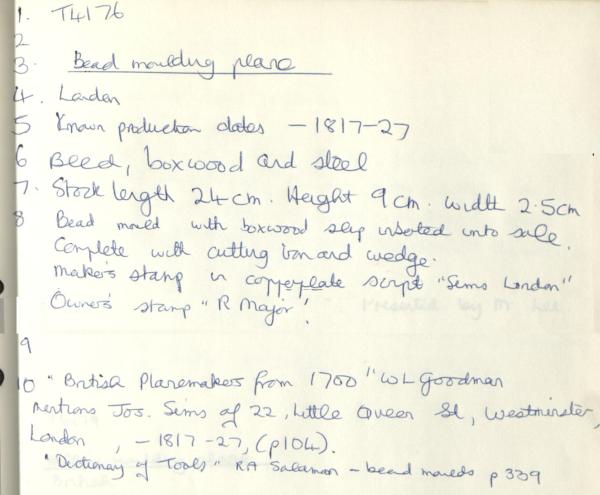 1. T4176
2
3. Bead moulding plane
4. London
5 Known production dates - 1817-27
6 Beed, boxwood and steel
7. Stock length 24cm. Height 9cm. width 2.5cm
8 Bead mould with boxwood slip inserted into sole.
Complete with cutting iron and wedge.
Maker's stamp in copperplate script "Sims London"
Owner's stamp "R Major".
9
10 "British Planemakers from 1700" WL Goodman
mentions Jos. Sims of 22, Little Queen St, Westminster,
London, - 1817-27, (p104).
"Dictionary of Tools" RA Salaman - bead moulds p 339